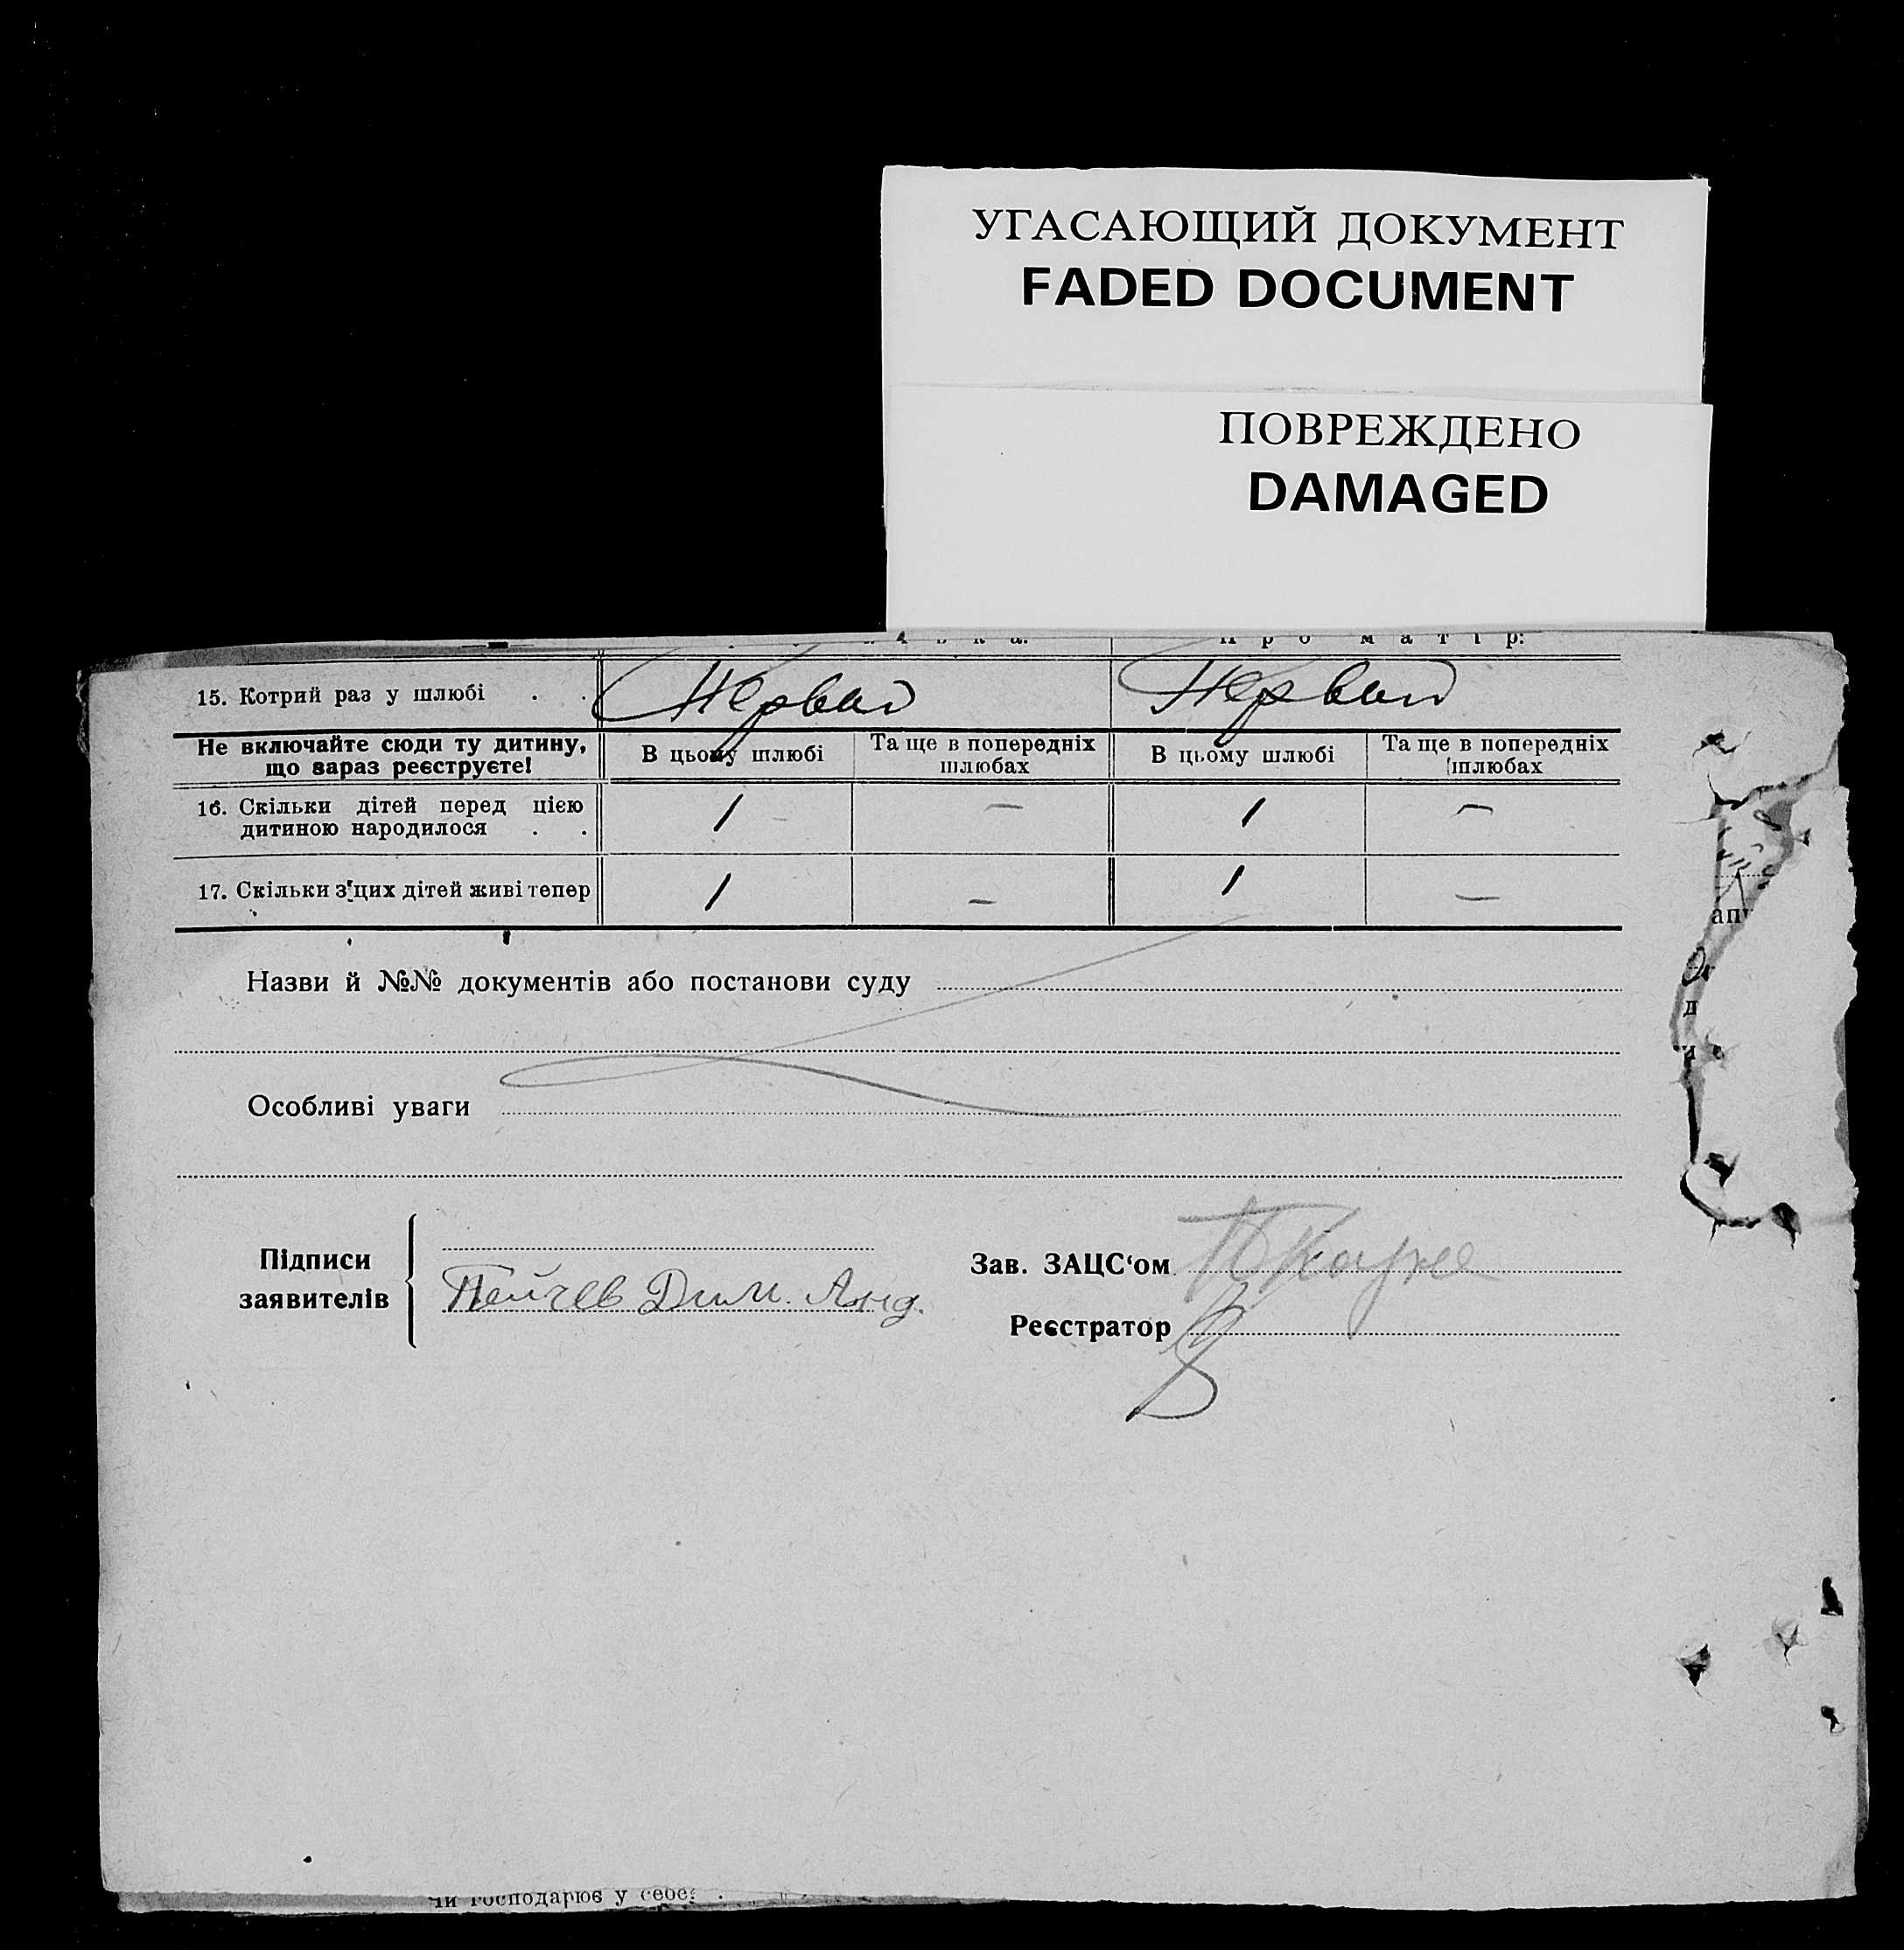 УГАСАЮЩИЙ ДОКУМЕНТ
FADED DOCUMENT
ПОВРЕЖДЕНО
DAMAGED
Про матір:
15. Котрий раз у шлюбі . . Первый Первый
Не включайте сюди ту дитину, що зараз реєструєте! В цьому шлюбі Та ще в попередніх шлюбах В цьому шлюбі Та ще в попередніх шлюбах
16. Скільки дітей перед цією
дитиною народилося . . 1 — 1 —
17. Скільки з цих дітей живі тепер 1 — 1 —
Назви й №№ документів або постанови суду
Особливі уваги
Підписи заявителів
Пейчев Дим. Анд.
Зав. ЗАЦС‘ом
Реєстратор
чи господарює у себе